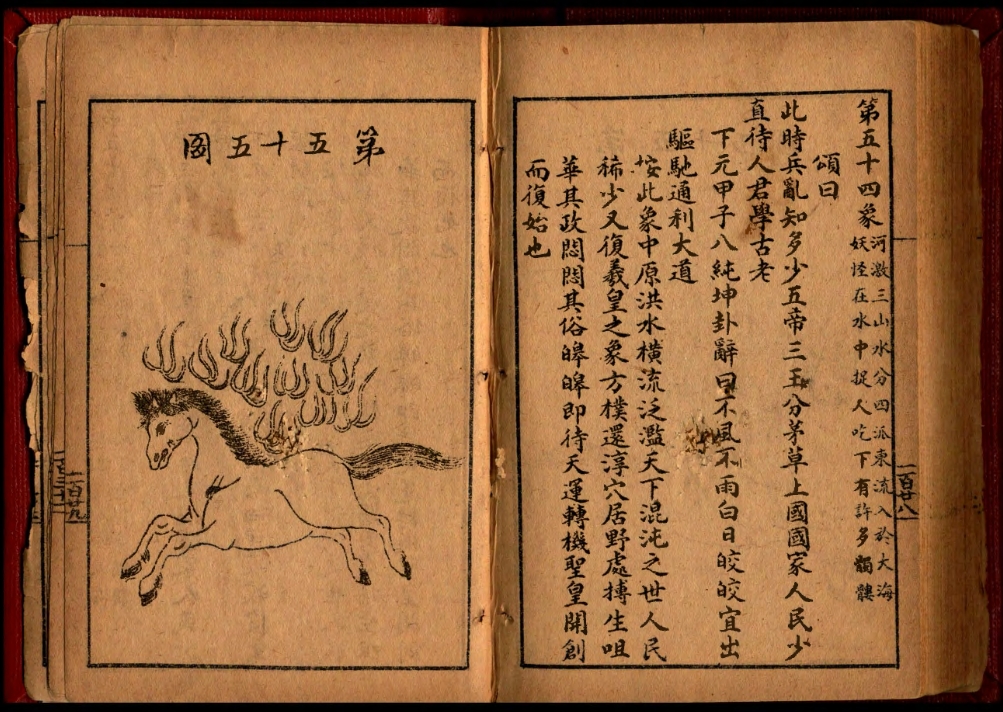 第五十四象
河激三山水分四派東流入於大海
妖怪在水中捉人吃下有許多髑髏
頌曰
此時兵亂知多少五帝三王分茅草上國國家人民少
直待人君學古老
下元甲子八純坤卦辭曰不風不雨白日皎皎宜出
驅馳通利大道
按此象中原洪水橫流泛濫天下混沌之世人民
稀少又復羲皇之象方樸還淳穴居野處摶生咀
華其政悶悶其俗皞皞即待天運轉機聖皇開創
而復始也
一百廿八
第五十五圖
一百廿九